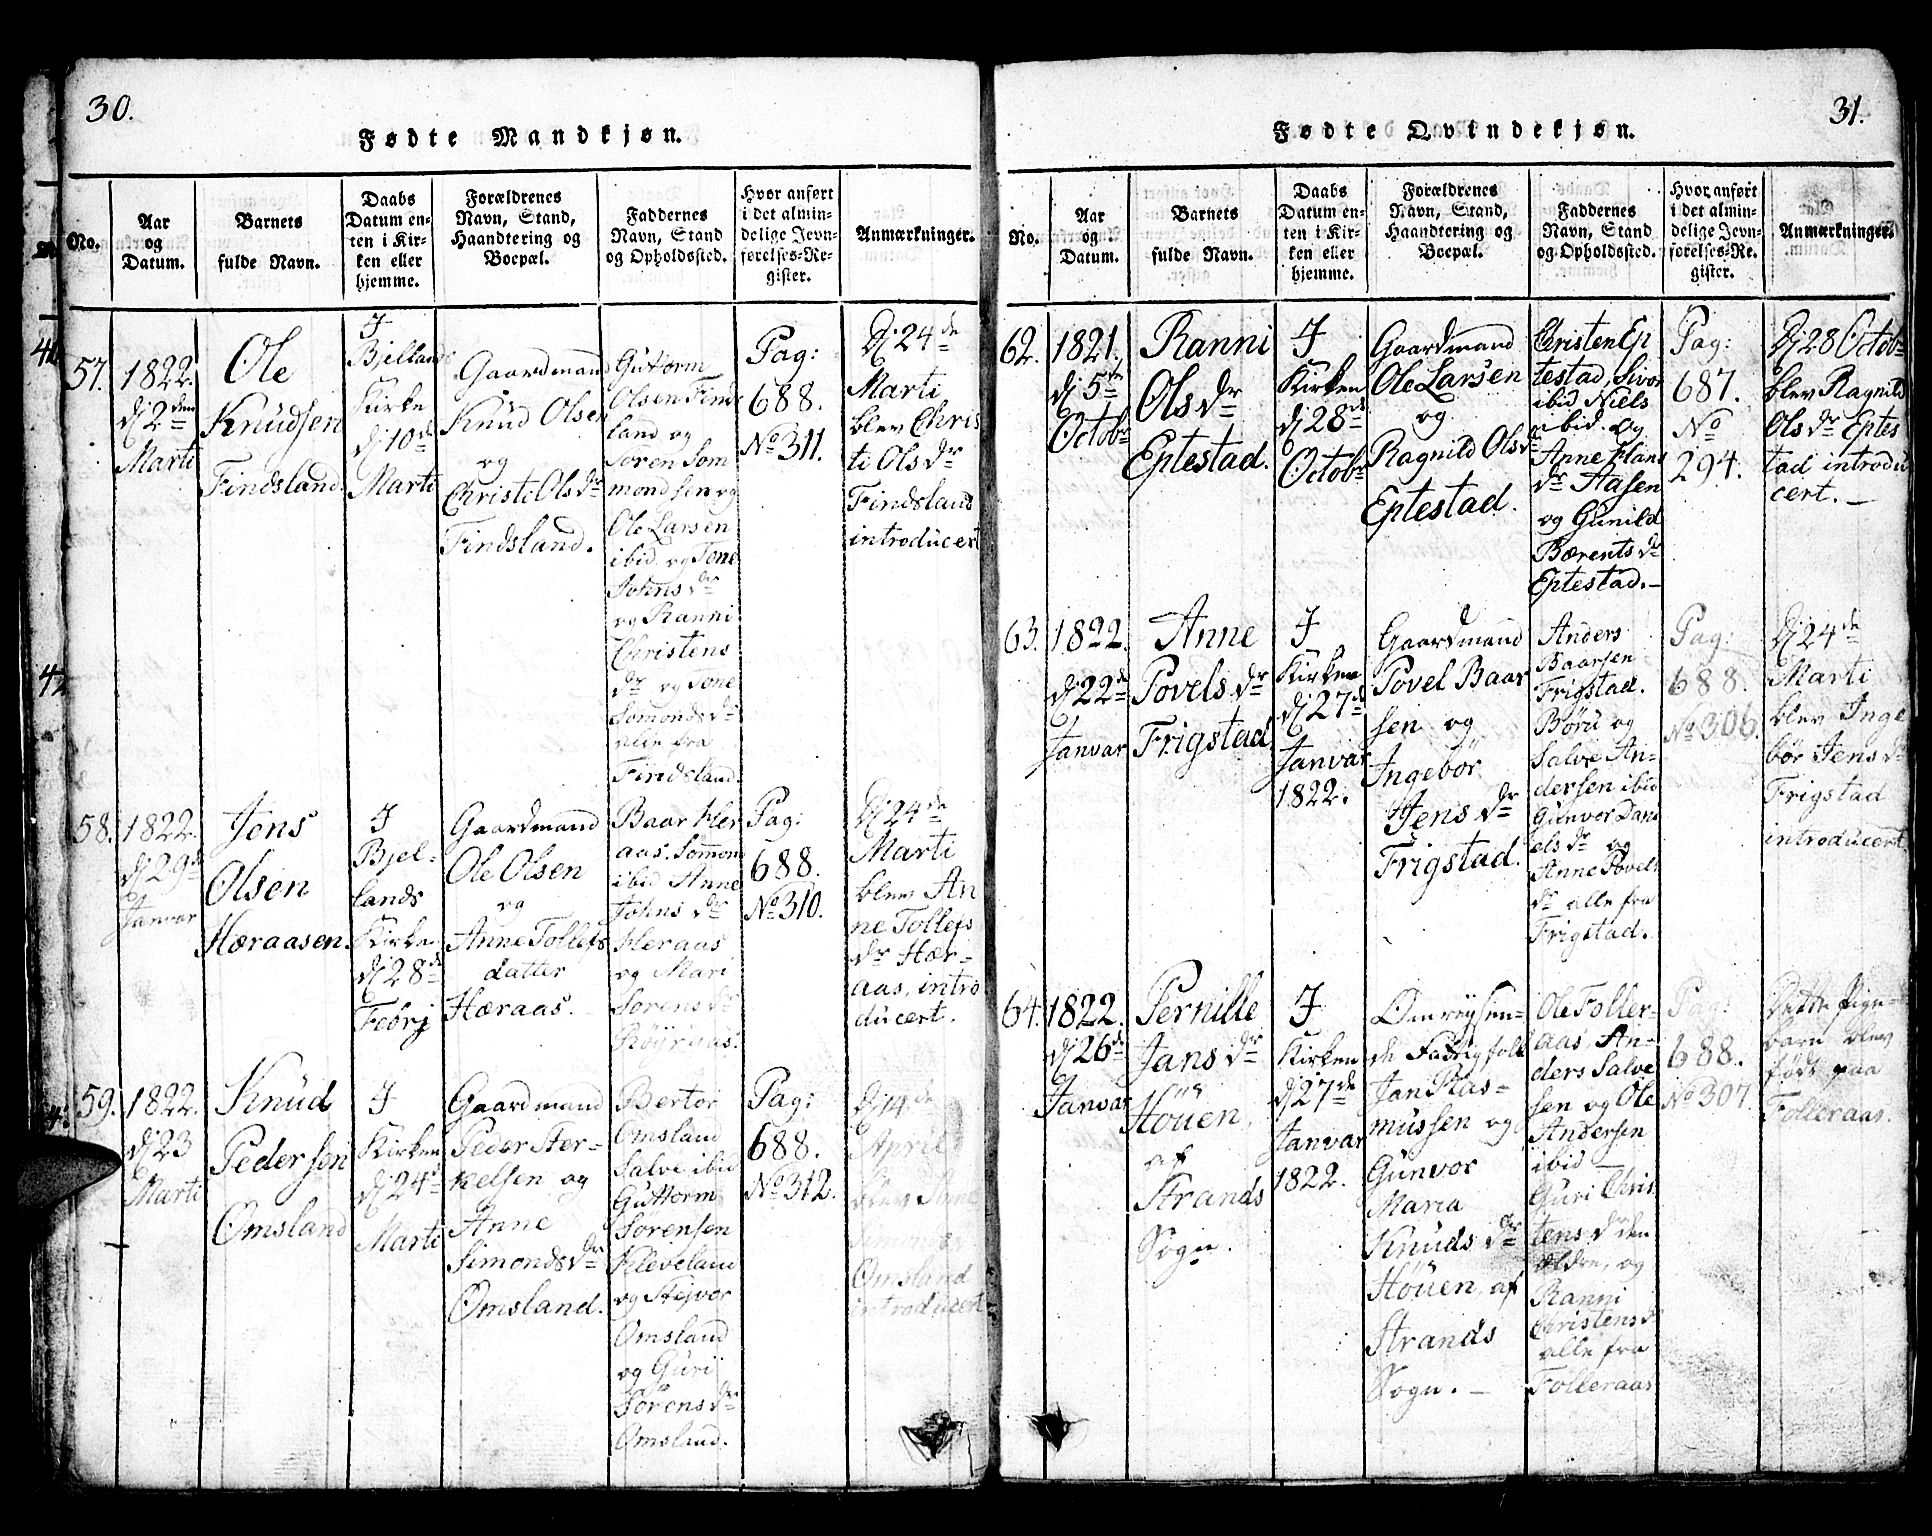 30.
Fødte Mandkjøn.
No.
Aar
og
Datum.
Barnets
fulde Navn.
Daabs
Datum en-
ten i Kir-
ken eller
hjemme.
Forældrenes
Navn, Stand,
Haandtering og
Boepæl.
Faddernes
Navn, Stand
og Opholdssted.
Hvor anført
i det almin-
delige Jevn-
førelses-Re-
gister.
Anmærkninger.
57.
1822.
dj 2den
Marti
Ole
Knudsen
Findsland.
I
Bjellands
Kirke
dj 10de
Marti
Gaardmand
Knud Olsen
og
Christi Olsdr
Findsland.
Guttorm
Olsen Finds
land og
Sören Som
mondsen og
Ole Larsen
ibid og Tone
Johnsdr
og Ranni
Christens
dr og Tone
Somondsdr
alle fra
Findsland.
Pag:
688.
No 311.
Dj 24de
Marti
blev Chris
ti Olsdr
Findsland
introducert
58.
1822.
dj 29de
Janvar
Jens
Olsen
Hæraasen.
I
Bjel-
lands
Kirke
dj 28de
Febrj
Gaardmand
Ole Olsen
og
Anne Tollefs
datter
Hæraas.
Baar Her
aas, Sommon
ibid Anne
Johnsdr
Heraas
og Mari
Sörensdr
Röyraas.
Pag:
688.
No 310.
Dj 24de
Marti
blev An
ne Tollefs
dr Hær-
aas, intro
ducert.
59.
1822.
dj 23
Marti
Knud
Pedersen
Omsland
I
Kirken
dj 24de
Marti
Gaardmand
Peder Ster-
kelsen og
Anne
Simondsdr
Omsland.
Bertor
Omsland
Salve ibid
Guttorm
Sörensen
Kleveland
og Siejvor
Omsland
og Gurij
Sörensdr
Omsland.
Pag:
688.
No 312.
Dj 14de
April
blev Anne
Omsland
introducert
31.
Fødte Qvindekjøn.
No.
Aar
og
Datum.
Barnets
fulde Navn.
Daabs
Datum en-
ten i Kir-
ken eller
hjemme.
Forældrenes
Navn, Stand,
Haandtering og
Boepæl.
Faddernes
Navn, Stand
og Opholdssted.
Hvor anført
i det almin-
delige Jevn-
førelses-Re-
gister.
Anmærkninger.
62.
1821.
dj 5te
Octobr
Ranni
Olsdr
Eptestad.
I
Kirken
dj 28de
Octobr
Gaardmand
Ole Larsen
og
Ragnild Olsdr
Eptestad.
Christen Ep
testad, Sivor
ibid Niels
ibid. og
Anne Hans
dr Aasen
og Gunild
Bærentsdr
Eptestad.-
Pag:
687.
No
294.
Dj 28 Octobr
blev Ragnild
Olsdr Eptes
tad introdu
cert.-
63.
1822.
dj 22de
Janvar
Anne
Povelsdr
Frigstad
I
Kirken
dj 27de
Janvar
1822.
Gaardmand
Povel Baar
sen og
Ingebör
Jensdr
Frigstad.
Anders
Baarsen
Frigstad.
Böru og
Salve An-
dersen ibid
Gunvor Dani
elsdr og
Anne Povels
dr alle fra
Frigstad.
Pag:
688.
No 306.
Dj 24de
Marti
blev Inge
bör Jensdr
Frigstad
introducert
64.
1822.
dj 26de
Janvar
Pernille
Jansdr
Höuen,
af
Strands
Sogn.
I
Kirken
dj 27de
Janvar
1822.
Omreysen-
de Fattigfolk
Jan Ras-
mussen og
Gunvor
Maria
Knudsdr
Höuen, af
Strands
Sogn.-
Ole Foller-
aas, An-
ders Salve
sen og Ole
Andersen
ibid
Guri Chris
tensdr den
ældre, og
Ranni
Christensdr
alle fra
Folleraas
Pag:
688.
No 307
Dette Pige-
barn blev
födt paa
Folleraas.